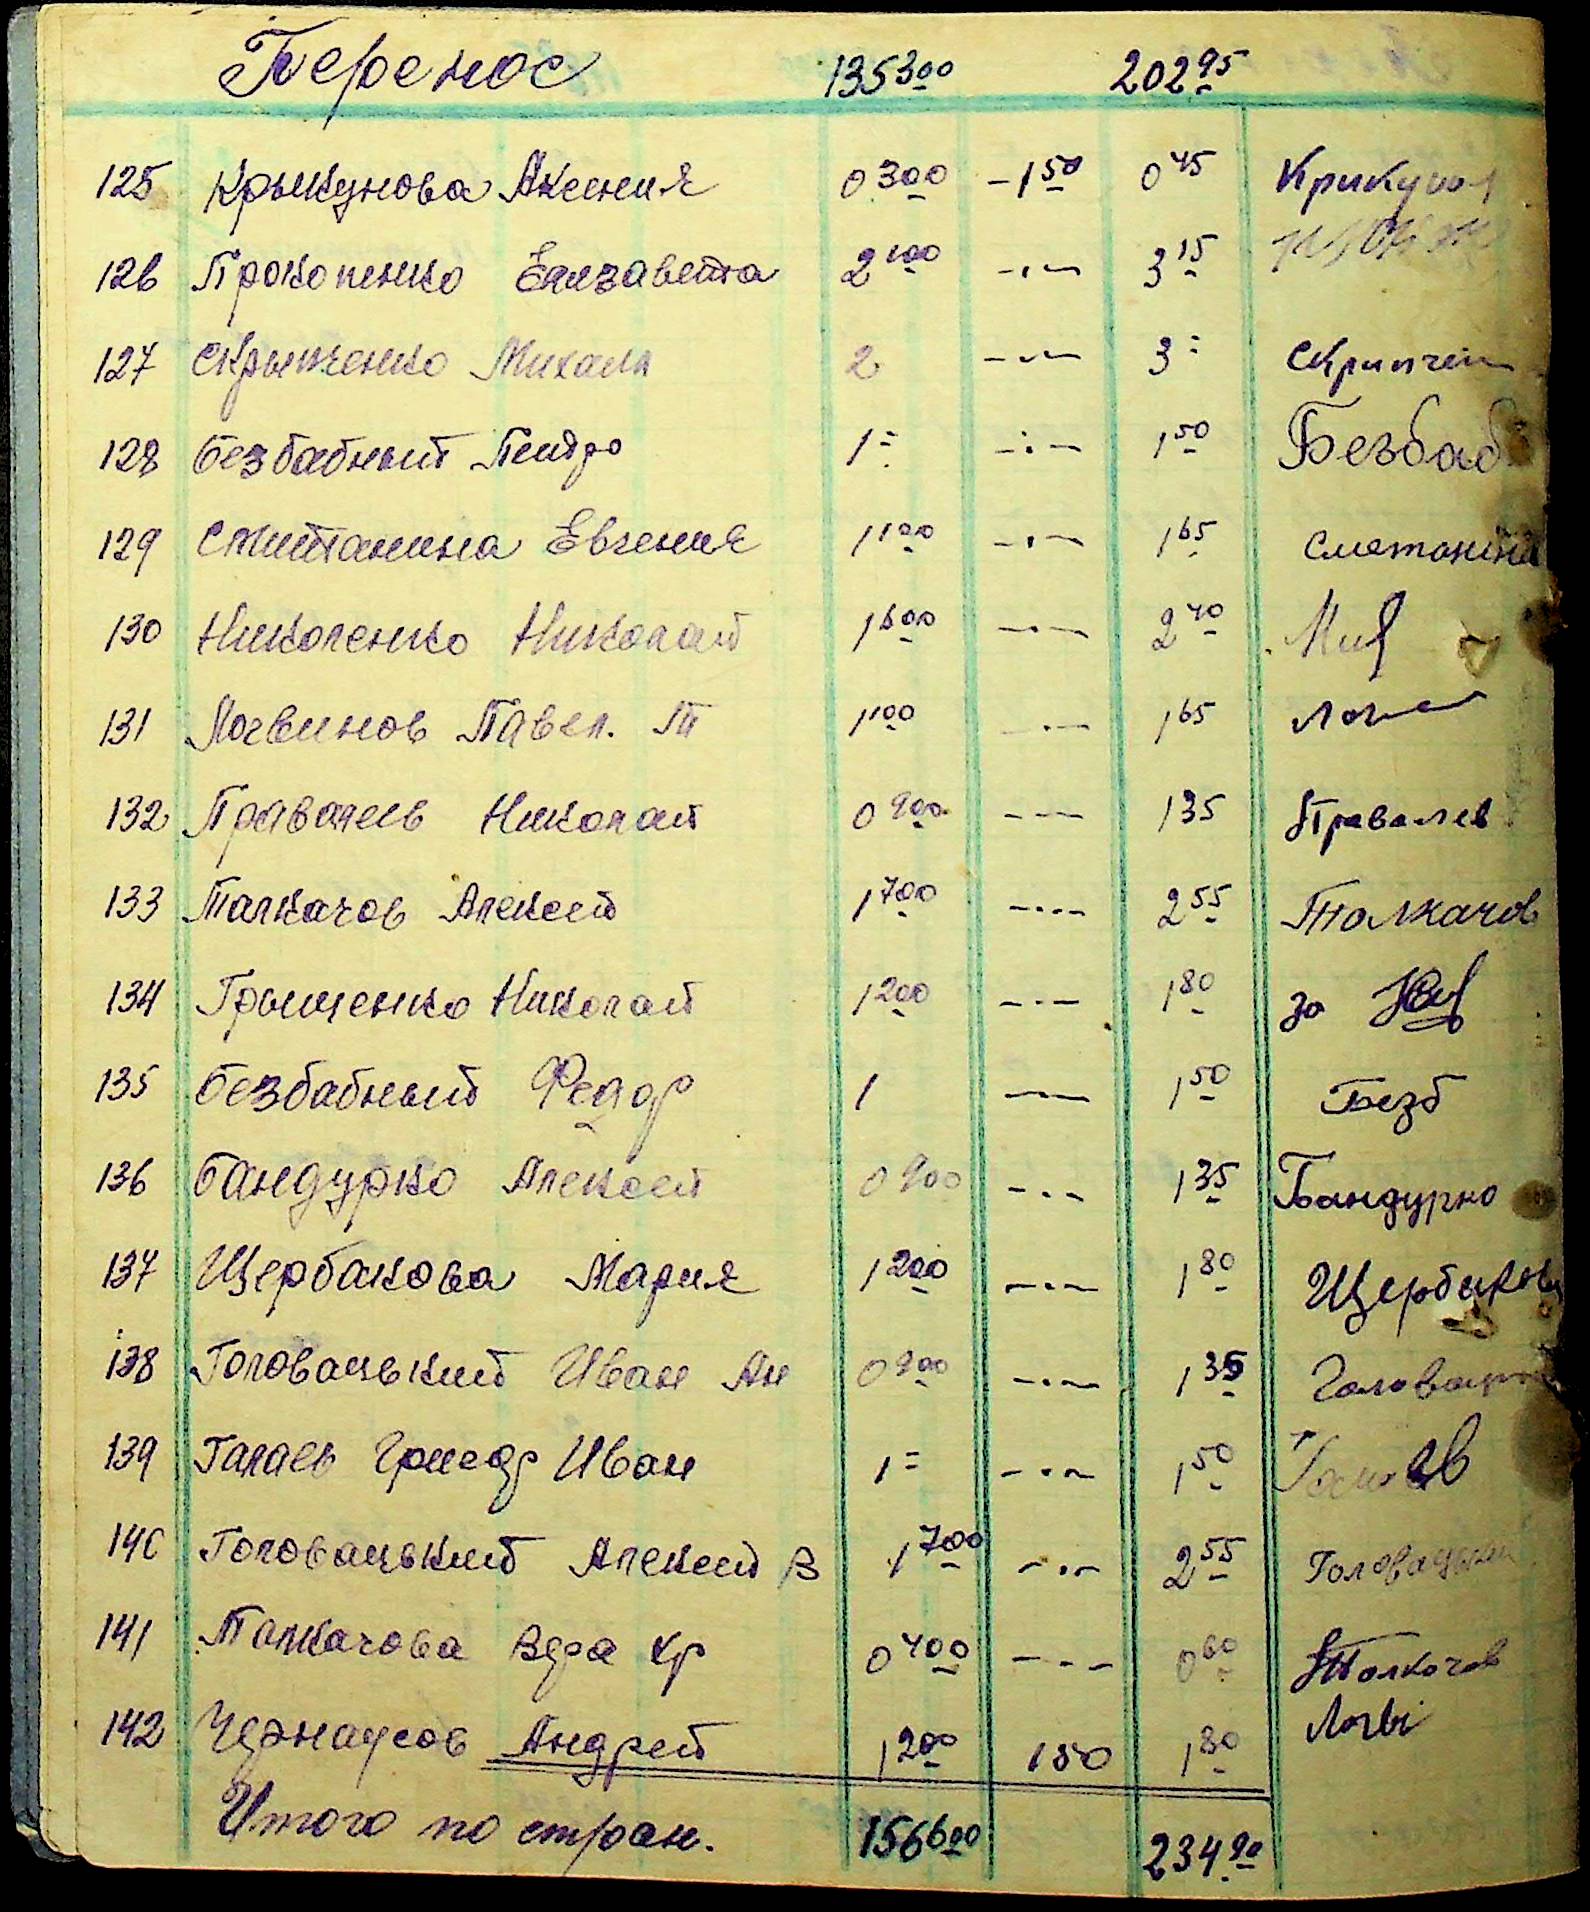 Перенос 135300 20295
125 Крыкунова Аксения 0300 -150 045 Крикунов
126 Прокопенко Елизавета 2100 -·- 315
127 Скрыпченко Михаил 2 --- 3= Скрипчен
128 Безбабный Петро 1= -·- 150 Безбаб
129 Смитанина Евгения 1100 -·- 165 Сметанина
130 Николенко Николай 1600 -·- 240
131 Логвинов Павел. Т 1100 -·- 165
132 Правалев Николай 0900 --- 135 Правалев
133 Талкачов Алексей 1700 -··- 255 Толкачов
134 Грыщенко Николай 1200 -·- 180 за
135 Безбабный Федор 1 --- 150 Безб
136 Бандурко Алексей 0900 -·- 135 Бандурко
137 Щербакова Мария 1200 -·- 180 Щербакова
138 Головацький Иван Ан 0900 -·- 135
139 Галаев Иван 1= -·- 150
140 Головацький Алексей В 1700 -·- 255 Головацкий
141 Талкачова Вера Кр 0400 -·- 060 Толкачов
142 Чернаусов Андрей 1200 150 180 Логві
Итого по стран. 156600 23490